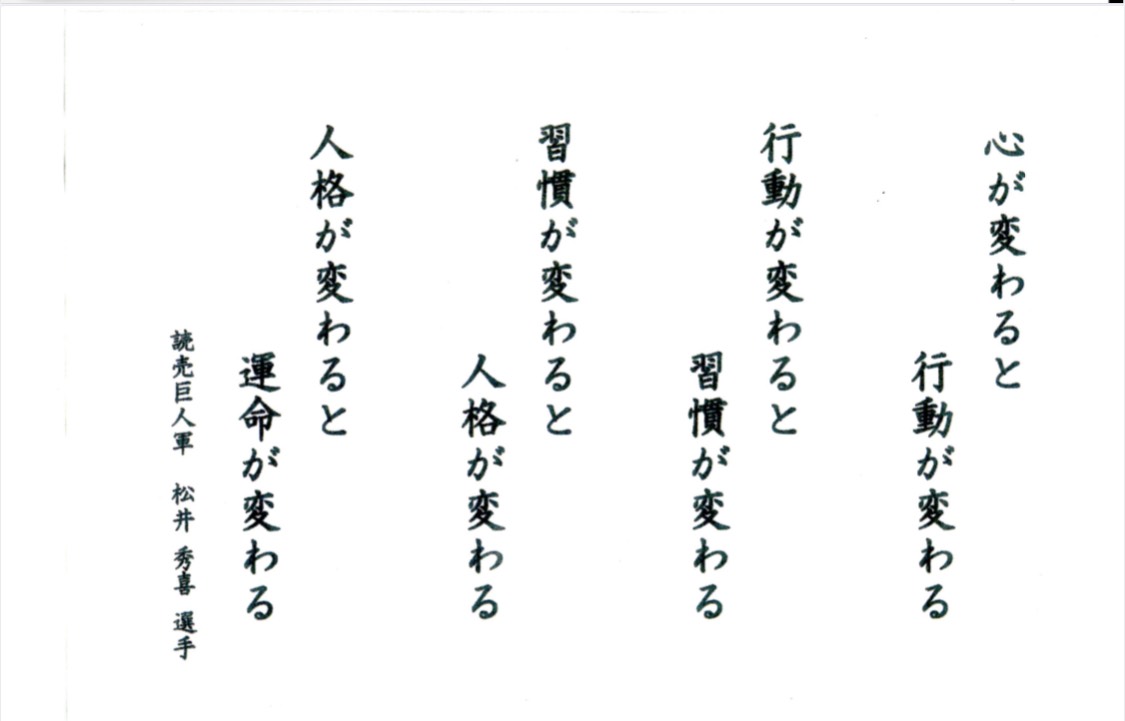 心が変わると
行動が変わる
行動が変わると
習慣が変わる
習慣が変わると
人格が変わる
人格が変わると
運命が変わる
読売巨人軍 松井 秀喜 選手